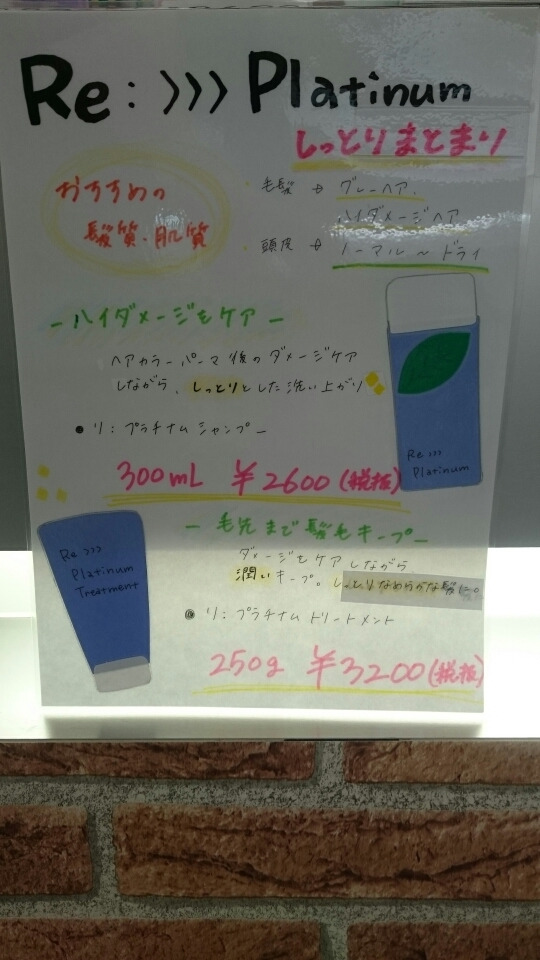 Re:>>> Platinum
しっとりまとまり
おすすめの
髪質・肌質
・毛髪 → グレーヘア、
ハイダメージヘア
・頭皮 → ノーマル〜ドライ
-ハイダメージをケア-
ヘアカラー、パーマ後のダメージケア
しながら、しっとりとした洗い上がり
●リ:プラチナムシャンプー
300mL ¥2600(税抜)
Re >>>
Platinum
-毛先まで髪毛キープ-
ダメージをケアしながら
潤いキープ。しっとりなめらかな髪に。
●リ:プラチナムトリートメント
250g ¥3200(税抜)
Re >>>
Platinum
Treatment